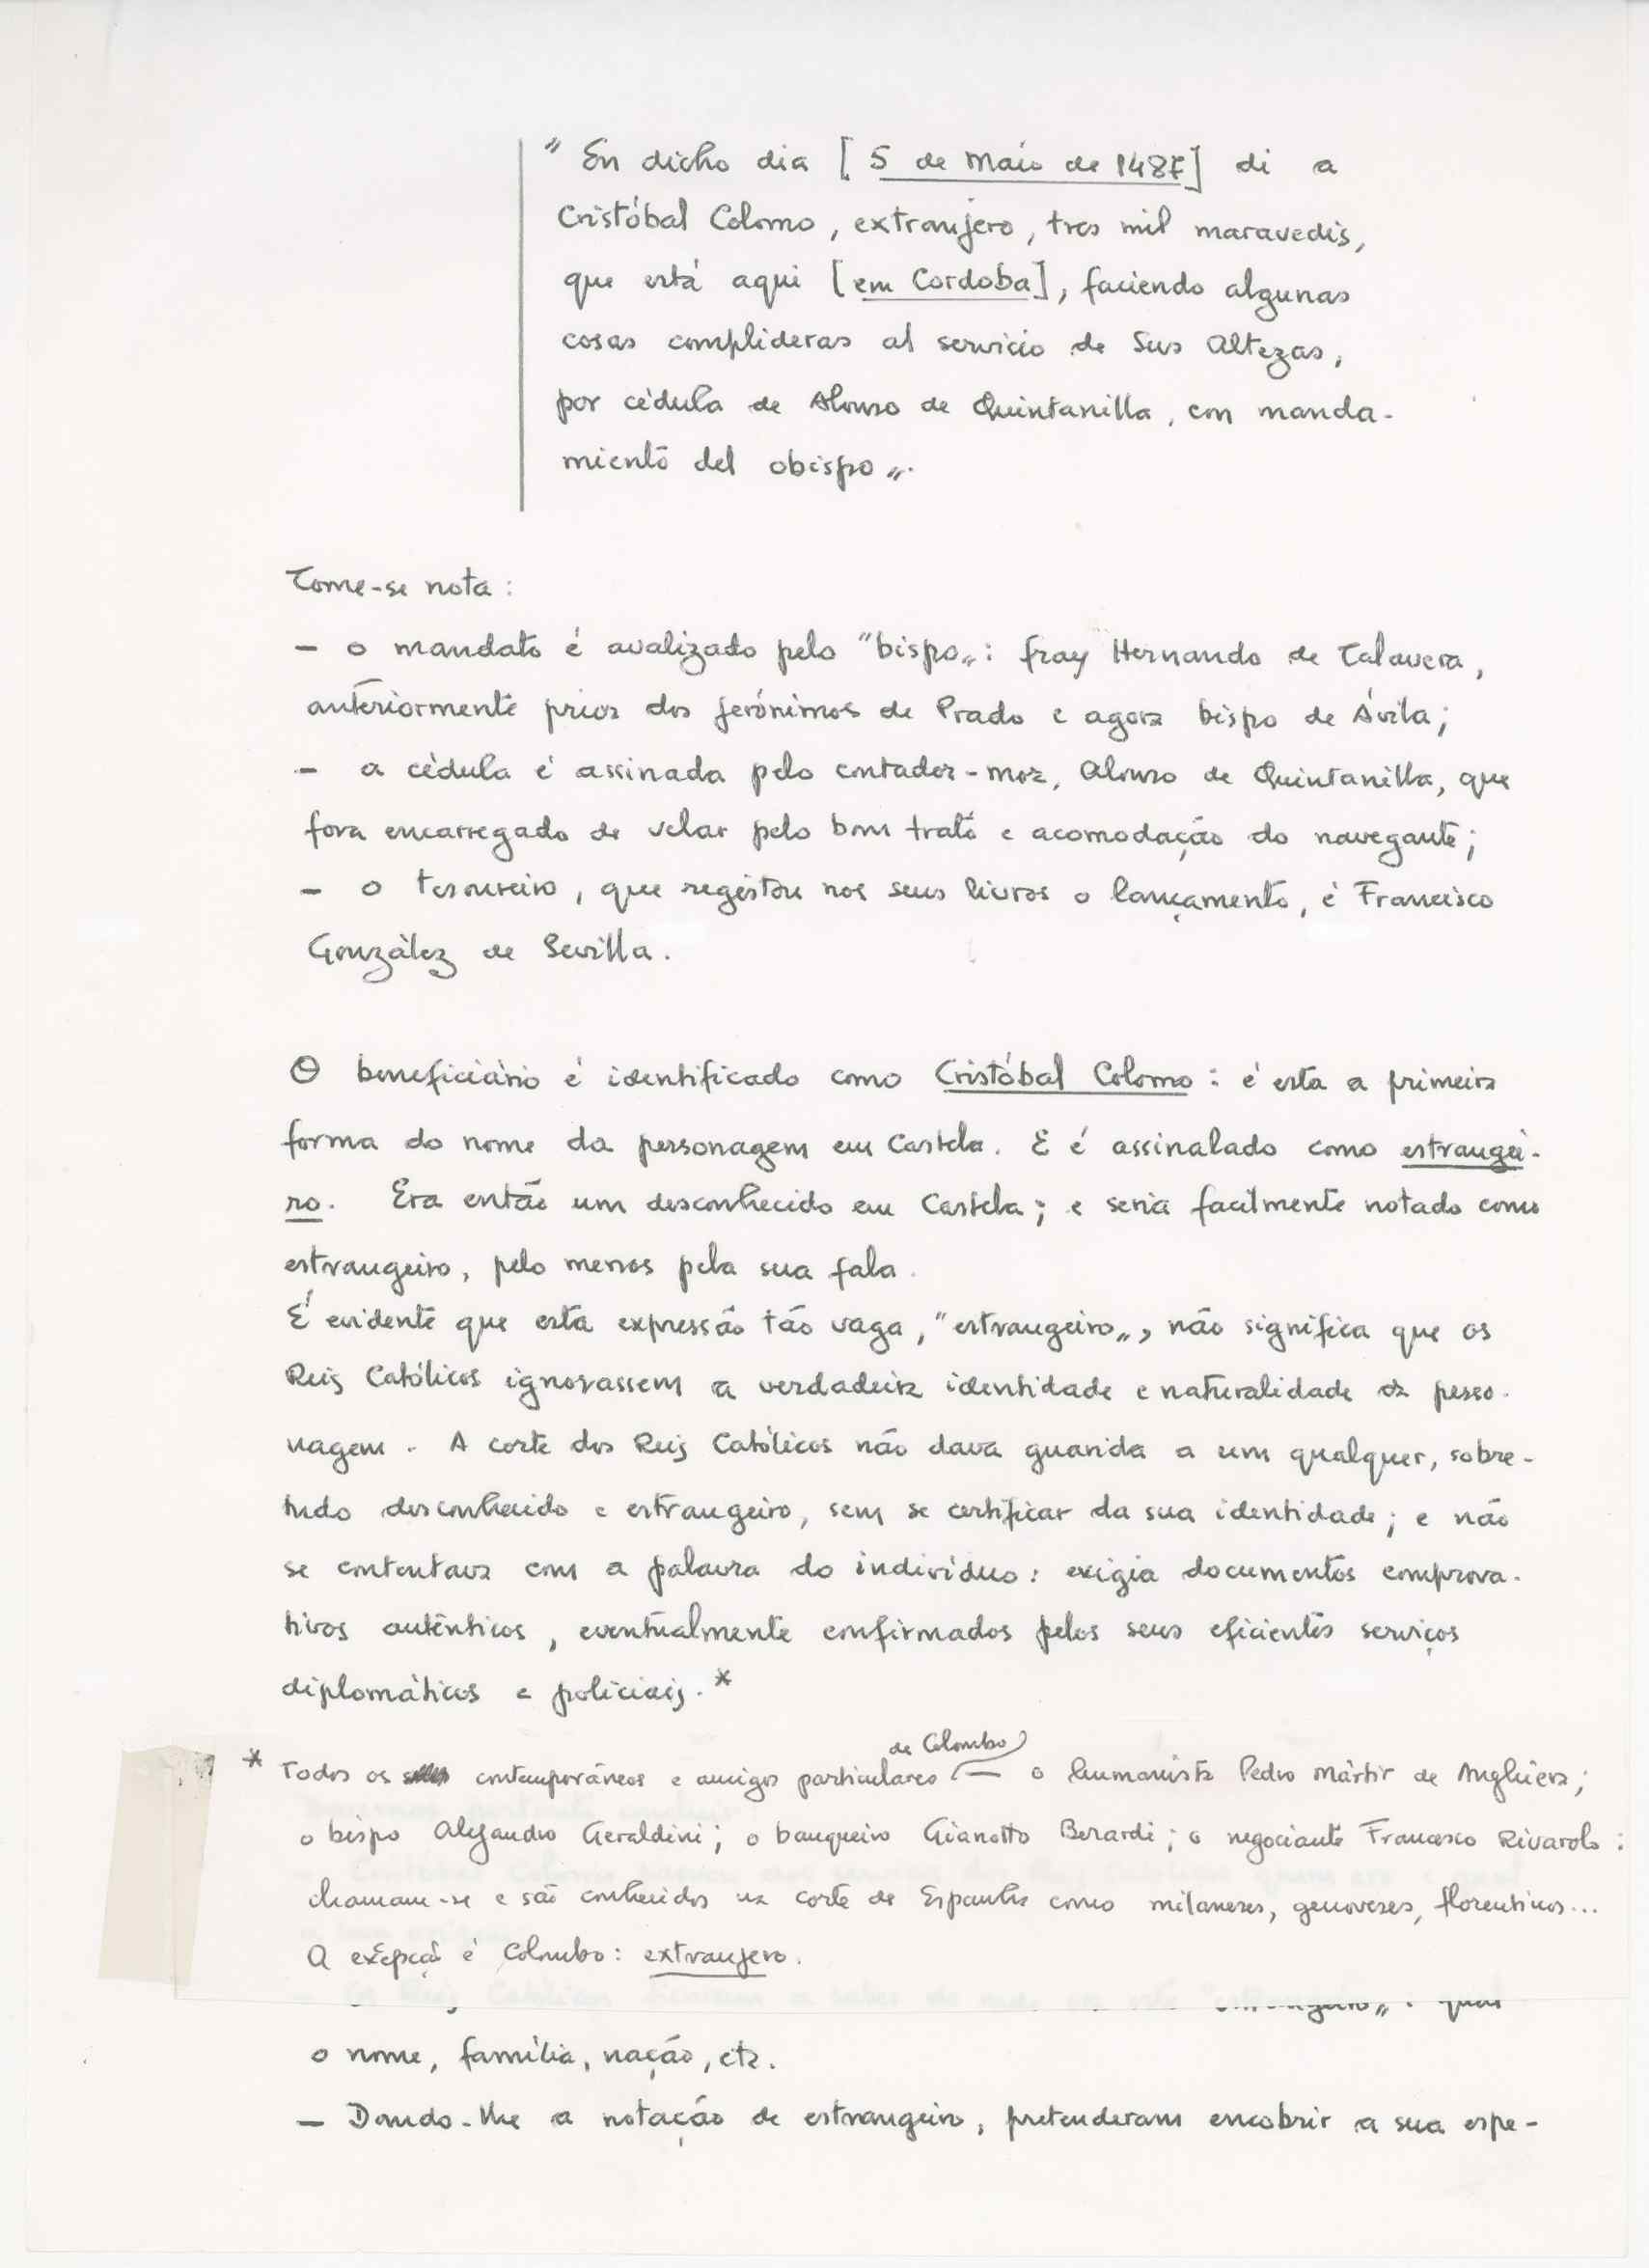 "En dicho dia [5 de Maio de 1487] di a
Cristóbal Colomo, extranjero, tres mil maravedis,
que está aqui [em Cordoba], faciendo algunas
cosas complideras al servicio de Sus Altezas,
por cédula de Alonso de Quintanilla, con manda-
miento del obispo".
Tome-se nota:
- o mandato é avalizado pelo "bispo": fray Hernando de Talavera,
anteriormente prior dos jerónimos de Prado e agora bispo de Ávila;
- a cédula é assinada pelo contador-mor, Alonso de Quintanilla, que
fora encarregado de velar pelo bom trato e acomodação do navegante;
- o tesoureiro, que registou nos seus livros o lançamento, é Francisco
González de Sevilla.
O beneficiário é identificado como Cristóbal Colomo: é esta a primeira
forma do nome da personagem em Castela. E é assinalado como estrangei-
ro. Era então um desconhecido em Castela; e seria facilmente notado como
estrangeiro, pelo menos pela sua fala.
É evidente que esta expressão tão vaga, "estrangeiro", não significa que os
Reis Católicos ignorassem a verdadeira identidade e naturalidade da perso-
nagem. A corte dos Reis Católicos não dava guarida a um qualquer, sobre-
tudo desconhecido e estrangeiro, sem se certificar da sua identidade; e não
se contentava com a palavra do indivíduo: exigia documentos comprova-
tivos autênticos, eventualmente confirmados pelos seus eficientes serviços
diplomáticos e policiais.*
de Colombo
* Todos os contemporâneos e amigos particulares — o humanista Pedro Mártir de Anghiera;
o bispo Alejandro Geraldini; o banqueiro Gianotto Berardi; o negociante Francesco Rivarolo:
chamam-se e são conhecidos na corte de Espanha como milaneses, genoveses, florentinos...
A exepção é Colombo: extranjero.
o nome, família, nação, etc.
- Dando-lhe a notação de estrangeiro, pretenderam encobrir a sua espe-